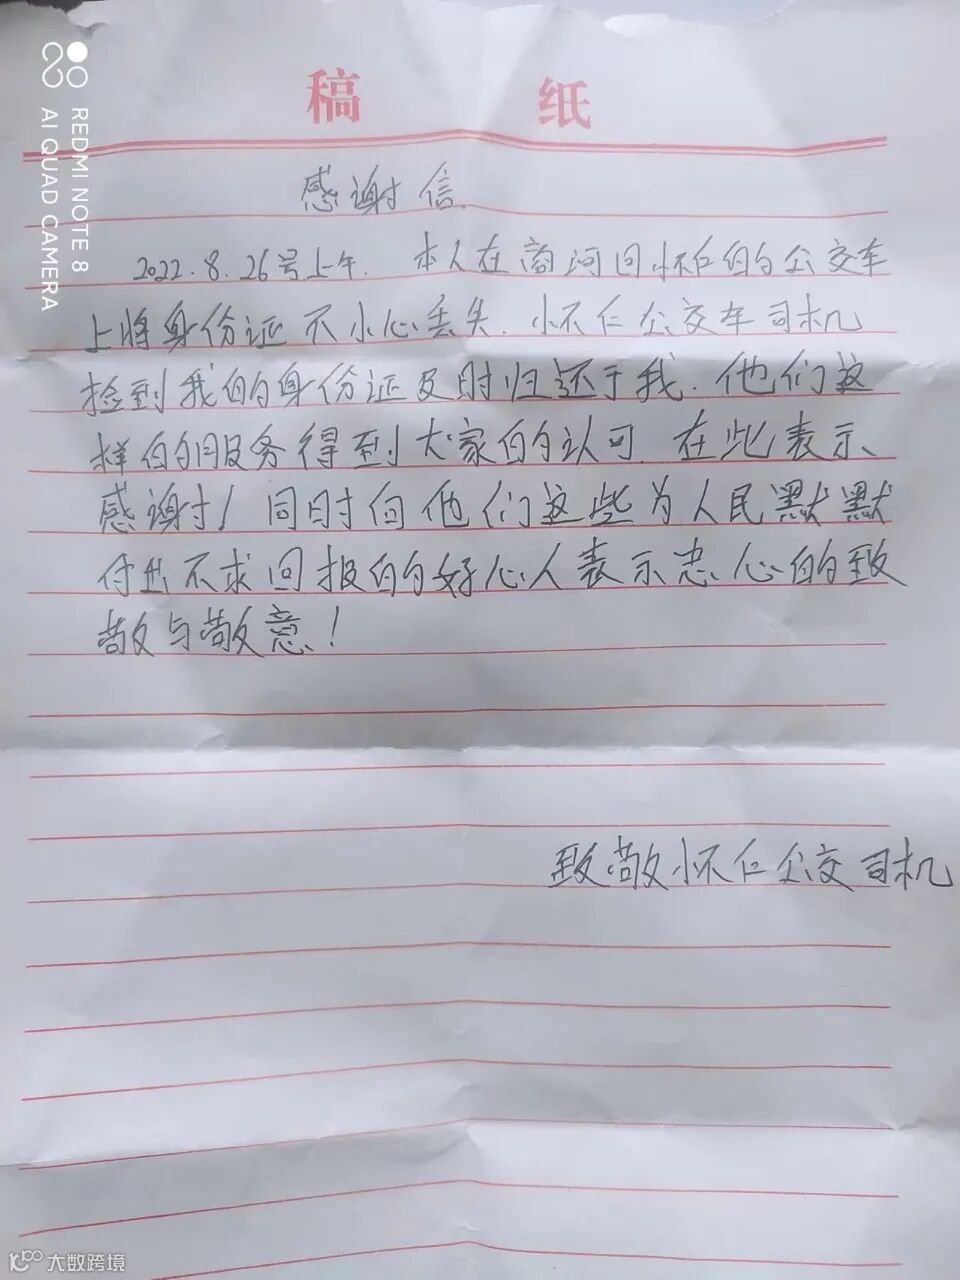 稿 纸
感谢信.
2022.8.26号上午. 本人在商河回怀仁的公交车
上将身份证不小心丢失. 怀仁公交车司机
捡到我的身份证及时归还于我. 他们这
样的服务得到大家的认可. 在此表示
感谢! 同时向他们这些为人民默默
付出不求回报的好心人表示忠心的致
敬与敬意!
致敬怀仁公交司机
REDMI NOTE 8
AI QUAD CAMERA
大数跨境